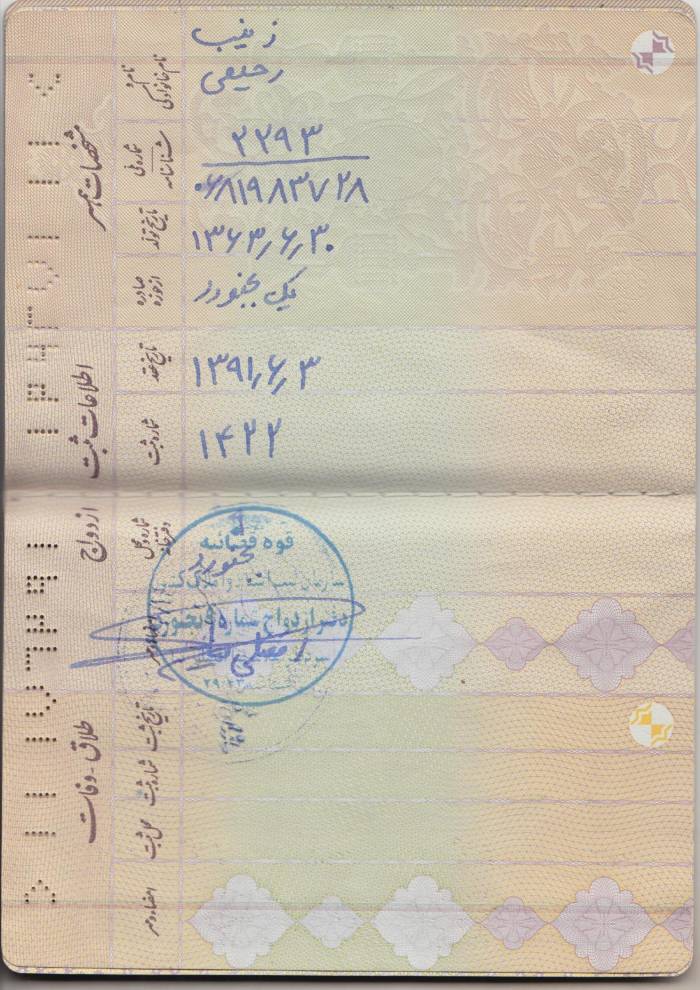 مشخصات همسر
نام و نام خانوادگی
زینب
رحیمی
شماره ملی
شناسنامه
۲۲۹۳
۰۶۸۱۹۸۳۷۲۸
تاریخ تولد
۱۳۶۳/۶/۳۰
صادره از حوزه
یک بجنورد
اطلاعات ثبت
ازدواج
تاریخ عقد
۱۳۹۱/۶/۳
شماره ثبت
۱۴۲۲
شماره و محل دفترخانه
بجنورد
قوه قضائیه
سازمان ثبت اسناد و املاک کشور
دفتر ازدواج شماره
بجنورد
طلاق - وفات
تاریخ ثبت
شماره ثبت
محل ثبت
امضاء و مهر